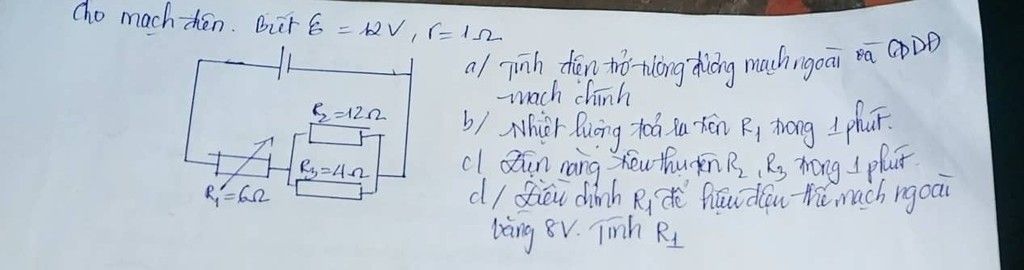 Cho mạch điện. Biết ξ = 12V, r = 1Ω
a/ Tính điện trở tương đương mạch ngoài và CĐDĐ
mạch chính
R₂=12Ω
b/ Nhiệt lượng toả ra trên R₁ trong 1 phút.
R₃=4Ω
c/ Điện năng tiêu thụ trên R₂, R₃ trong 1 phút.
R₁=6Ω
d/ Điều chỉnh R₁ để hiệu điện thế mạch ngoài
bằng 8V. Tính R₁